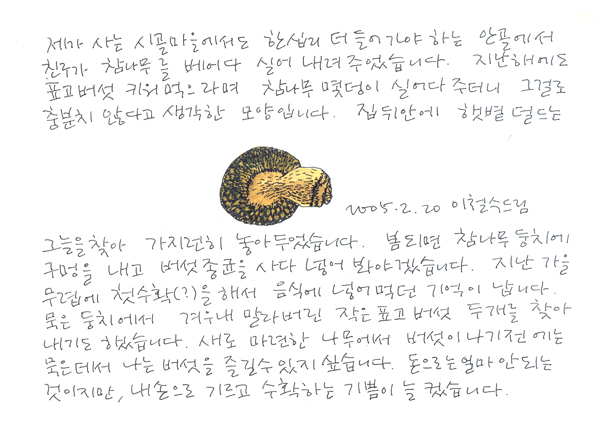 제가 사는 시골마을에서도 한십리 더 들어가야 하는 안골에서
친구가 참나무를 베어다 실어 내려 주었습니다. 지난해에도
표고버섯 키워 먹으라며 참나무 몇덩이 실어다 주더니 그걸로
충분치 않다고 생각한 모양입니다. 집뒤안에 햇볕 덜드는
2005.2.20 이철수드림
그늘을 찾아 가지런히 놓아두었습니다. 봄되면 참나무 둥치에
구멍을 내고 버섯종균을 사다 넣어 봐야겠습니다. 지난 가을
무렵에 첫수확(?)을 해서 음식에 넣어 먹던 기억이 납니다.
묵은 둥치에서 겨우내 말라버린 작은 표고버섯 두개를 찾아
내기도 했습니다. 새로 마련한 나무에서 버섯이 나기전에는
묵은데서 나는 버섯을 즐길수 있지 싶습니다. 돈으로는 얼마 안되는
것이지만, 내손으로 기르고 수확하는 기쁨이 늘 컸습니다.